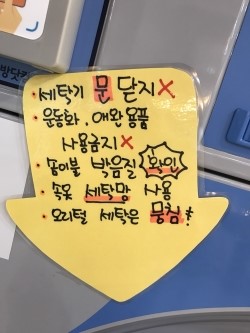 방닥
· 세탁기 문 닫지 X
· 운동화 · 애완용품
사용금지 X
· 솜이불 박음질 확인
· 속옷 세탁망 사용
· 오리털 세탁은 뭉침!